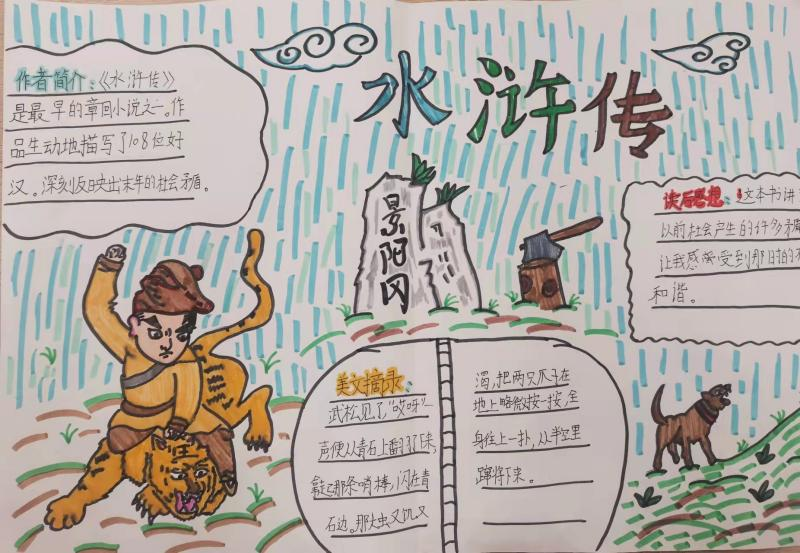 水浒传
作者简介:《水浒传》
是最早的章回小说之一。作
品生动地描写了108位好
汉。深刻反映出末年的社会矛盾。
景阳冈
读后感想:这本书讲
以前社会产生的许多矛盾
让我感受到那时的不
和谐。
美文摘录:
武松见了“哎呀”一
声便从青石上翻将下来,
拿起那条哨棒,闪在青
石边。那大虫又饥又
渴,把两只爪子在
地上略微按一按,全
身往上一扑,从半空里
蹿将下来。
王